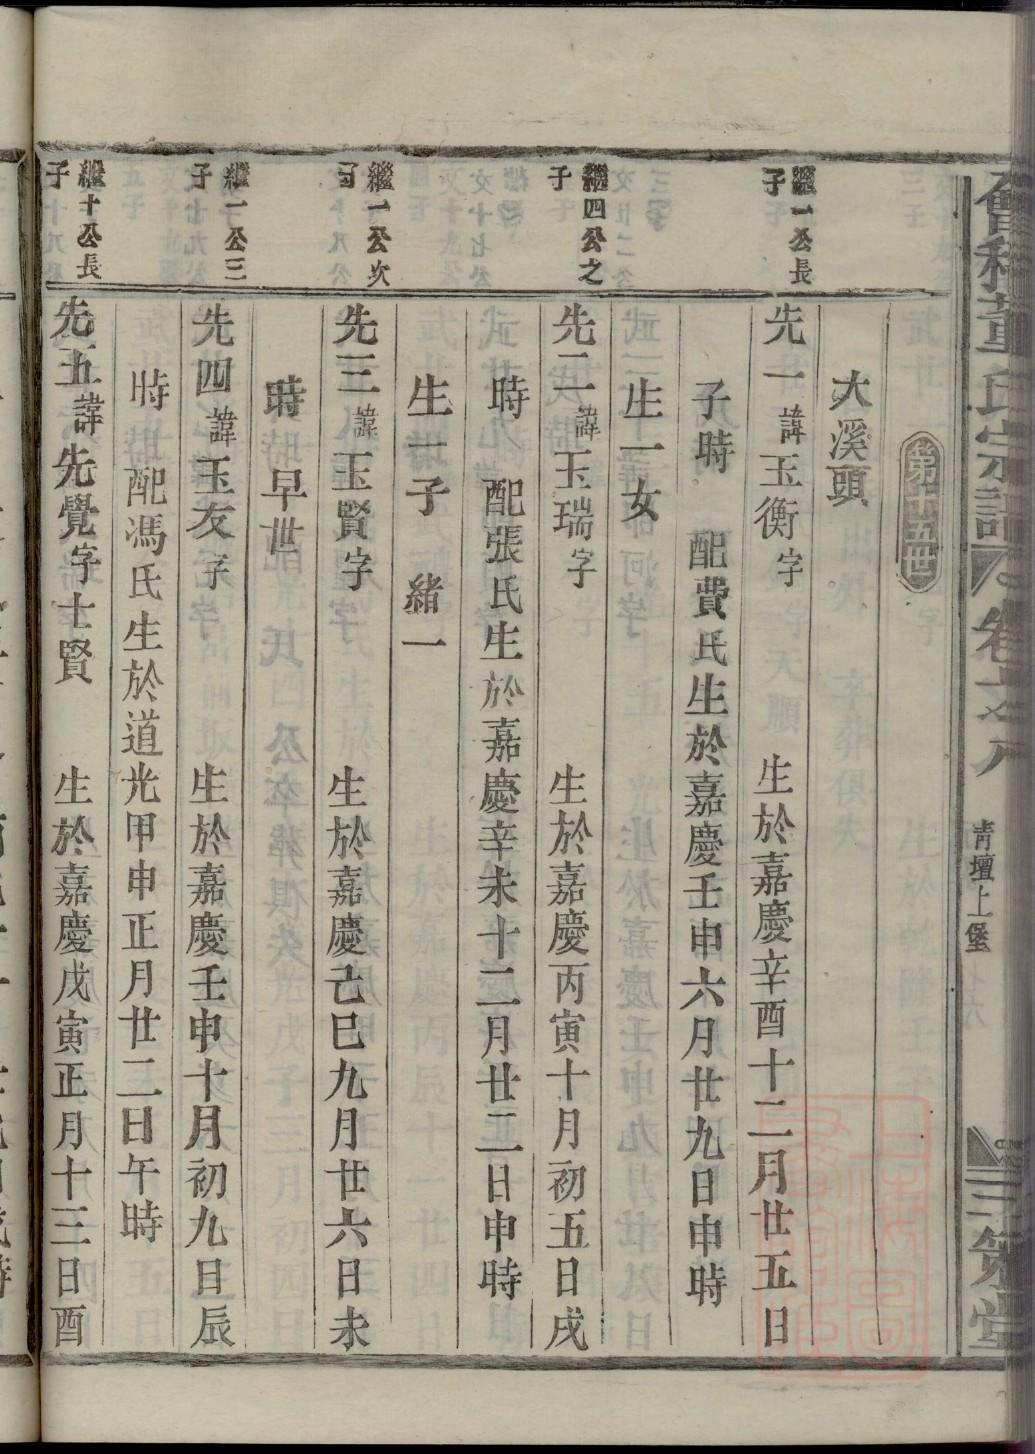 董氏宗譜 卷之八 青壇上堡 三策堂
第十五世
大溪頭
繼一公長
子
先一諱玉衡字 生於嘉慶辛酉十二月廿五日
子時 配費氏生於嘉慶壬申六月廿九日申時
生一女
繼四公之
子
先二諱玉瑞字 生於嘉慶丙寅十月初五日戌
時 配張氏生於嘉慶辛未十二月廿二日申時
生一子 緒一
繼一公次
子
先三諱玉賢字 生於嘉慶己巳九月廿六日未
時 早世
繼一公三
子
先四諱玉友字 生於嘉慶壬申十月初九日辰
時 配馮氏生於道光甲申正月廿二日午時
繼十公長
子
先五諱先覺字士賢 生於嘉慶戊寅正月十三日酉